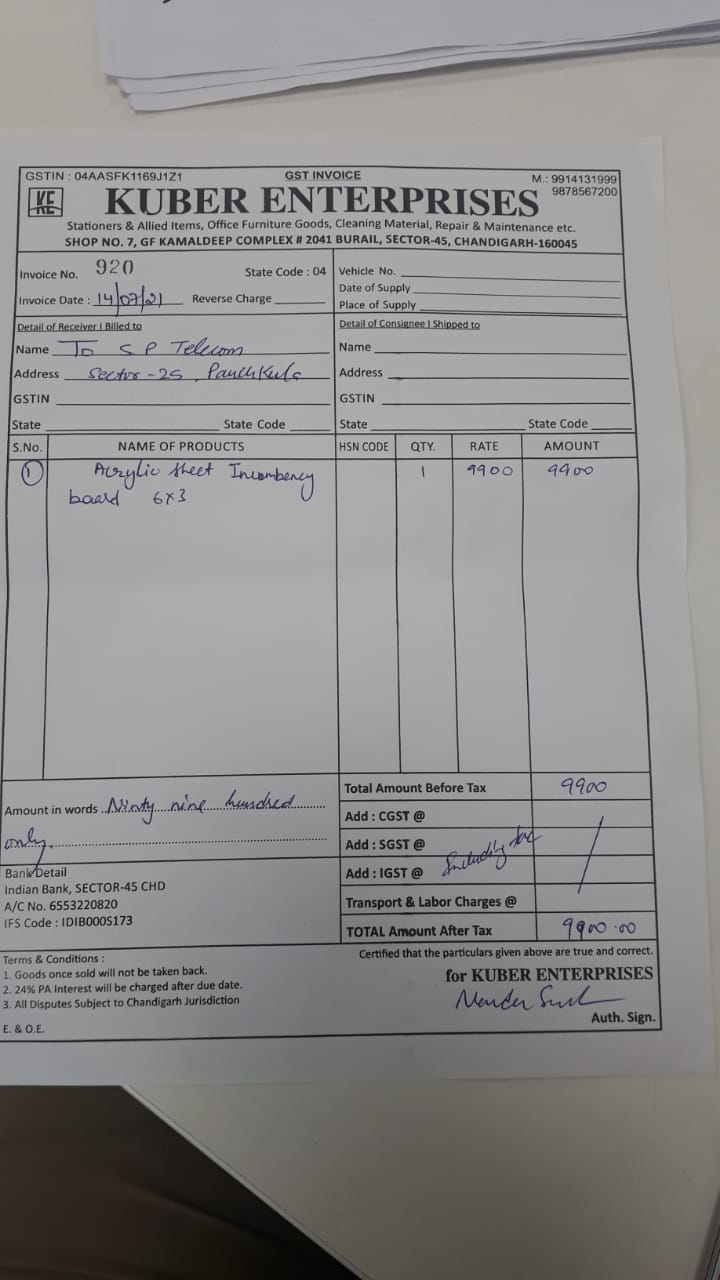 GSTIN : 04AASFK1169J1Z1
GST INVOICE
M.: 9914131999
9878567200
KE
KUBER ENTERPRISES
Stationers & Allied Items, Office Furniture Goods, Cleaning Material, Repair & Maintenance etc.
SHOP NO. 7, GF KAMALDEEP COMPLEX # 2041 BURAIL, SECTOR-45, CHANDIGARH-160045
Invoice No. 920 State Code : 04
Invoice Date : 14/07/21 Reverse Charge
Vehicle No.
Date of Supply
Place of Supply
Detail of Receiver | Billed to
Name To S P Telecom
Address Sector-25, Panchkula
GSTIN
State State Code
Detail of Consignee | Shipped to
Name
Address
GSTIN
State State Code
S.No. NAME OF PRODUCTS HSN CODE QTY. RATE AMOUNT
1 Acrylic sheet Incombency 1 9900 9900
board 6x3
Amount in words Ninty nine hundred
only.
Bank Detail
Indian Bank, SECTOR-45 CHD
A/C No. 6553220820
IFS Code : IDIB000S173
Total Amount Before Tax 9900
Add : CGST @
Add : SGST @
Add : IGST @ Including tax
Transport & Labor Charges @
TOTAL Amount After Tax 9900.00
Terms & Conditions :
1. Goods once sold will not be taken back.
2. 24% PA Interest will be charged after due date.
3. All Disputes Subject to Chandigarh Jurisdiction
E. & O.E.
Certified that the particulars given above are true and correct.
for KUBER ENTERPRISES
Auth. Sign.